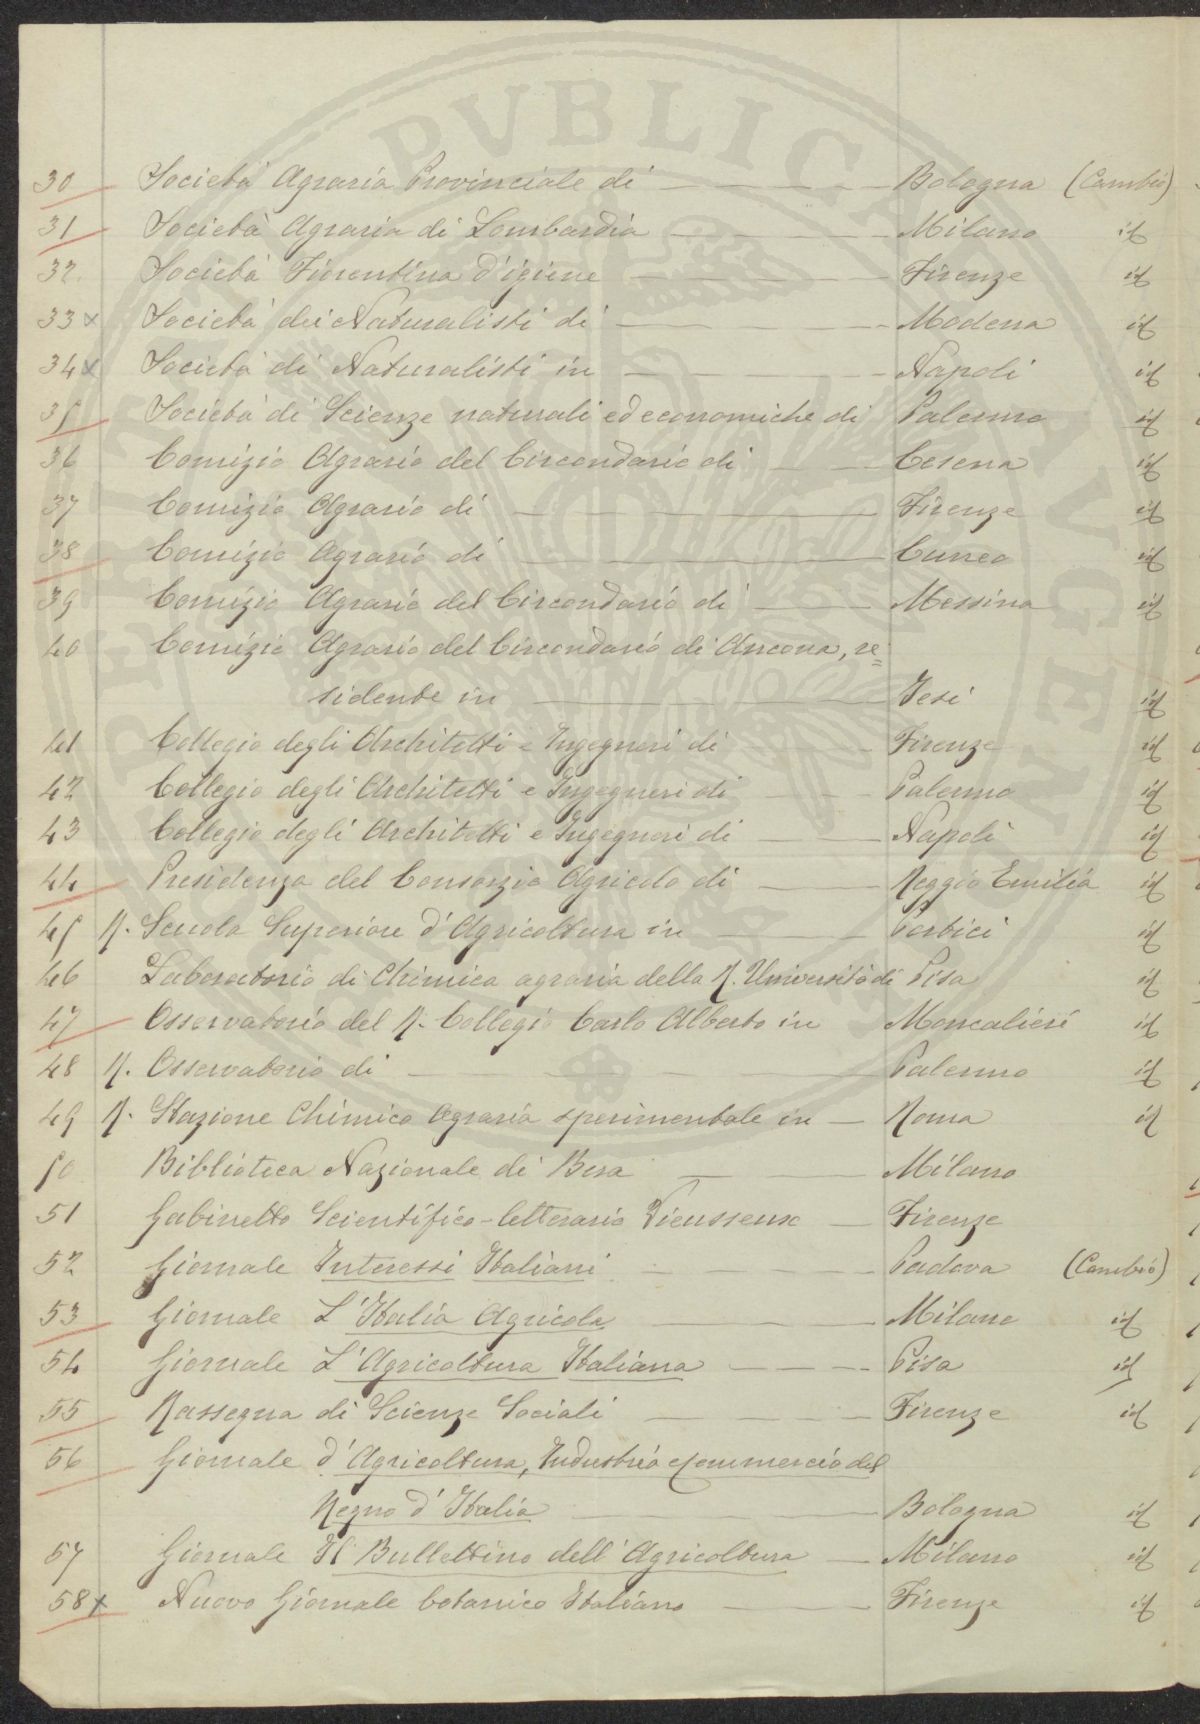 30 Società Agraria Provinciale di — Bologna (Cambio)
31 Società Agraria di Lombardia — Milano id
32 Società Fiorentina d'igiene — Firenze id
33 x Società dei Naturalisti di — Modena id
34 x Società di Naturalisti in — Napoli id
35 Società di Scienze naturali ed economiche di Palermo id
36 Comizio Agrario del Circondario di — Cesena id
37 Comizio Agrario di — Firenze id
38 Comizio Agrario di — Cuneo id
39 Comizio Agrario del Circondario di — Messina id
40 Comizio Agrario del Circondario di Ancona, re=
sidente in — Jesi id
41 Collegio degli Architetti e Ingegneri di — Firenze id
42 Collegio degli Architetti e Ingegneri di — Palermo id
43 Collegio degli Architetti e Ingegneri di — Napoli id
44 Presidenza del Consorzio Agricolo di — Reggio Emilia id
45 R. Scuola Superiore d'Agricoltura in — Portici id
46 Laboratorio di Chimica agraria della R. Università di Pisa id
47 Osservatorio del R. Collegio Carlo Alberto in Moncalieri id
48 R. Osservatorio di — Palermo id
49 R. Stazione Chimico Agraria sperimentale in — Roma id
50 Biblioteca Nazionale di Brera — Milano
51 Gabinetto Scientifico-letterario Vieusseux — Firenze
52 Giornale Interessi Italiani — Padova (Cambio)
53 Giornale L'Italia Agricola — Milano id
54 Giornale L'Agricoltura Italiana — Pisa id
55 Rassegna di Scienze Sociali — Firenze id
56 Giornale d'Agricoltura, Industria e Commercio del
Regno d'Italia — Bologna id
57 Giornale Il Bullettino dell'Agricoltura — Milano id
58 x Nuovo Giornale botanico Italiano — Firenze id